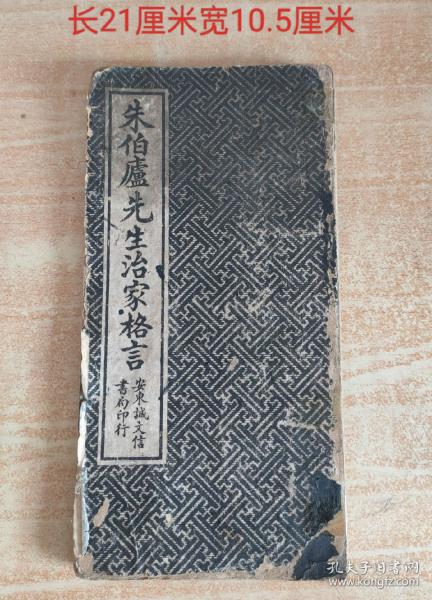 长21厘米宽10.5厘米
朱伯廬先生治家格言
安東誠文信
書局印行
孔夫子旧书网
www.kongfz.com